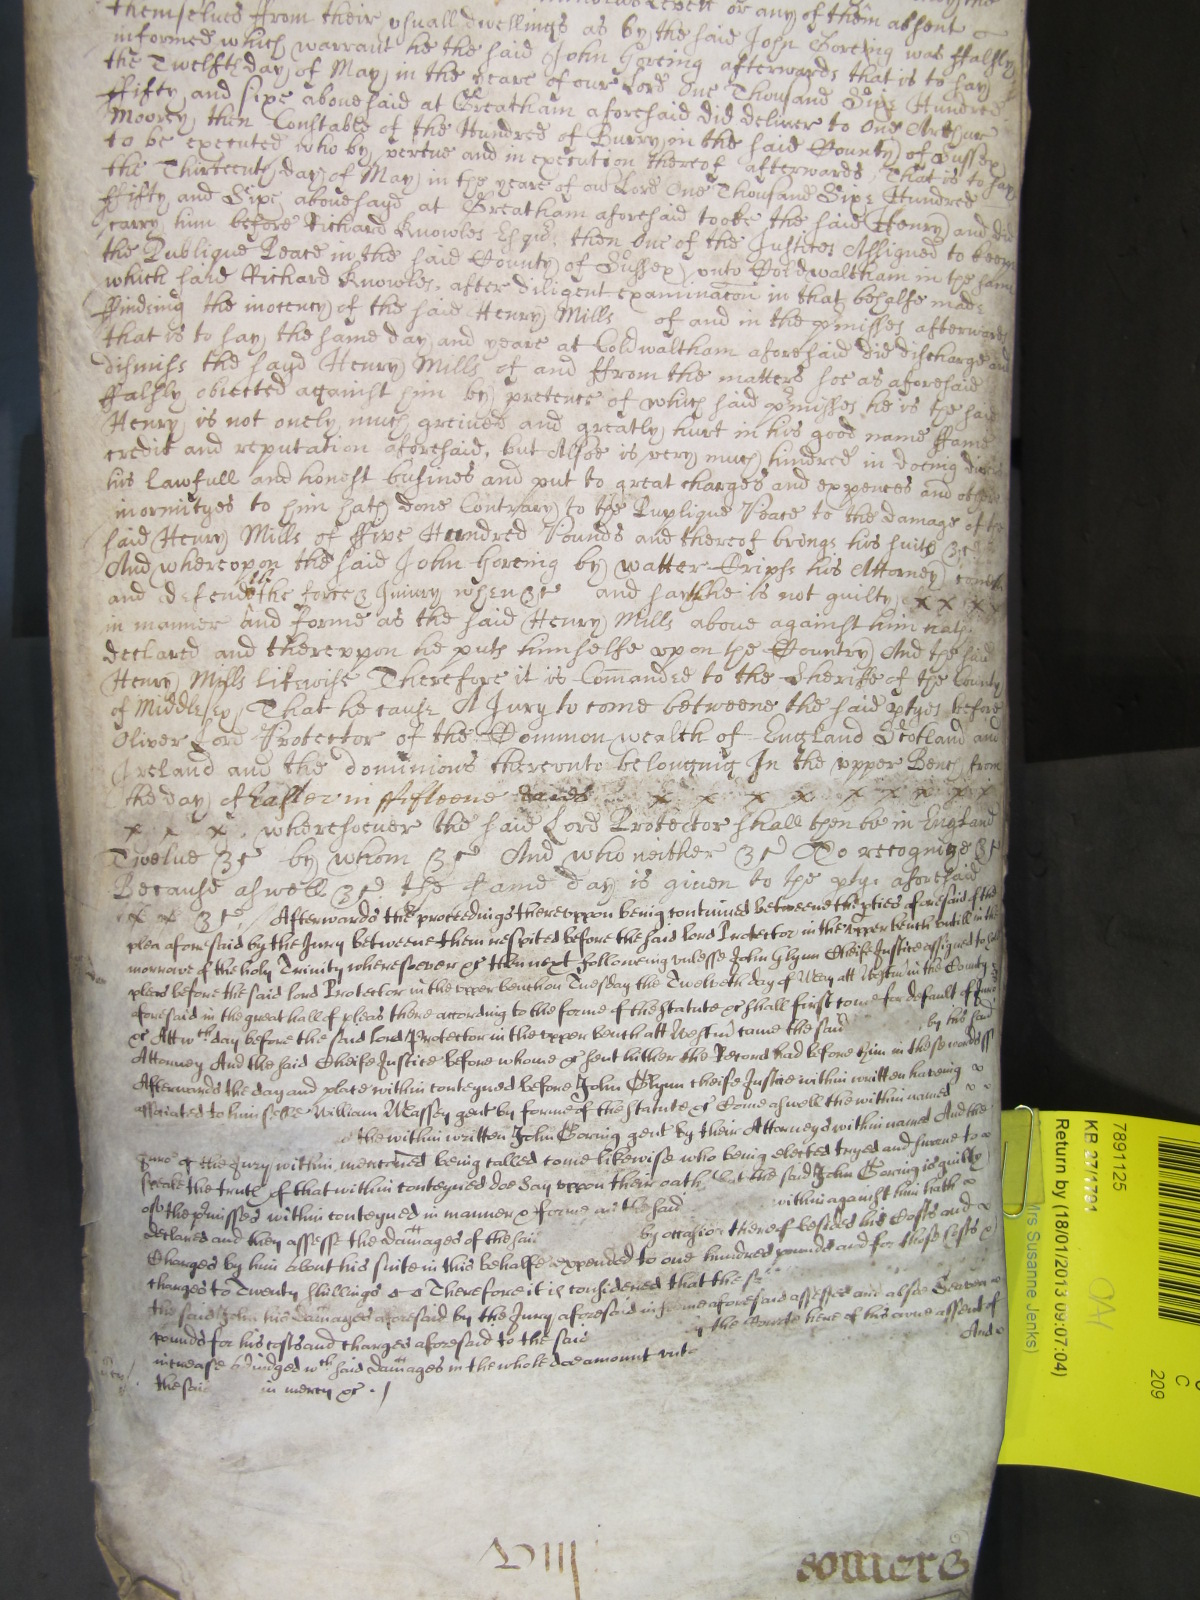 or any of them absent
themselves ffrom their usuall dwellings as by the said John Goreing was ffalsly
informed which warrant he the said John Goreing afterwards that is to say
the Twelfth day of May in the yeare of our Lord One Thousand Sixe Hundred
ffifty and sixe abovesaid at Greatham aforesaid did deliver to One Arthur
Moorey then Constable of the Hundred of Burry in the said County of Sussex
to be executed who by vertue and in execution thereof afterwards That is to say
the Thirteenth day of May in the yeare of our Lord One Thousand Sixe Hundred
ffifty and Sixe abovesayd at Greatham aforesaid tooke the said Henry and did
carry him before Richard Knowles Esqr. then One of the Justices Assigned to keepe
the Publique Peace in the said County of Sussex unto Coldwaltham in the same
which said Richard Knowles, after diligent examinacon in that behalfe made
ffinding the inocency of the said Henry Mills of and in the pmisses afterwards
that is to say the same day and yeare at Coldwaltham aforesaid did discharge and
dismiss the sayd Henry Mills of and ffrom the matters soe as aforesaid
ffalsly obiected against him by pretence of which said pmisses he is the said
Henry is not onely much greived and greatly hurt in his good name ffame
credit and reputation aforesaid, but Alsoe is very much hindred in doeing
his Lawfull and honest busines and put to great charges and expences and other
inormityes to him hath done Contrary to the Puplique Peace to the damage of the
said Henry Mills of ffive Hundred Pounds and thereof brings his suite &c
And whereopon the said John Goreing by Watter Cripse his Attorney cometh
and defends the force & Iniury when &c and sayth he is not guilty x x x x
in manner and forme as the said Henry Mills above against him hath
declared and thereupon he puts himselfe upon the Country And the said
Henry Mills likewise Therefore it is Comanded to the Sheriffe of the County
of Middlesex That he cause A Jury to come betweene the said ptyes before
Oliver Lord Protector of the Common wealth of England Scotland and
Ireland and the dominions thereunto belonging In the upper Bench from
the day of Easter in fifteene dayes x x x x x x x x
x x x. wheresoever the said Lord Protector shall then be in England
Twelve &c by whom &c And who neither &c To recognize &c
Because aswell &c the same day is given to the ptyes aforesaid
x x &c / Afterwards the proceedings thereuppon being continued betweene the pties aforesaid of the
plea aforesaid by the Jury betweene them respited before the said lord Protector in the upper bench untill in the
morrowe of the holy Trinity wheresoever &c then next following unlesse John Glynn Cheife Justice assigned to hold
plees before the said lord Protector in the upper bench on Tuesday the Twelveth day of May att Westm in the County
aforesaid in the great hall of pleas there according to the forme of the Statute &c shall first come for default of Jurors
&c Att wch day before the said lord Protector in the upper bench att Westm came the said by his said
Attorney And the said Cheife Justice before whome &c sent hither the Record had before him in these words ss
Afterwards the day and place within conteyned before John Glynn cheife Justice within written haveing
associated to him selfe William Massey gent by forme of the statute &c Come aswell the within named
the within written John Goring gent by their Attorneys within named And the
Jurors of the Jury within mencõned being called come likewise who being elected tryed and sworne to
speake the truth of that within conteyned doe say uppon their oath that the said John Goring is guilty
of the pmisses within conteyned in manner & forme as the said within against him hath
declared and they assesse the damages of the said by occasion thereof besides his Costs and
Charges by him about his suite in this behalfe expended to one hundred pounds and for those Costs &
charges to Twenty shillings Therefore it is considered that the
the said John his damages aforesaid by the Jury aforesaid in forme aforesaid assessed and alsoe Seaven
pounds for his costs and charges aforesaid to the said the Courte here of his owne assent of
increase adiudged wch said damages in the whole doe amount unto And
the said in mercy &c
VIII
Somers
7891125
KB 27/1791
Return by (18/01/2013 09:07:04)
Mrs Susanne Jenks)
C
209